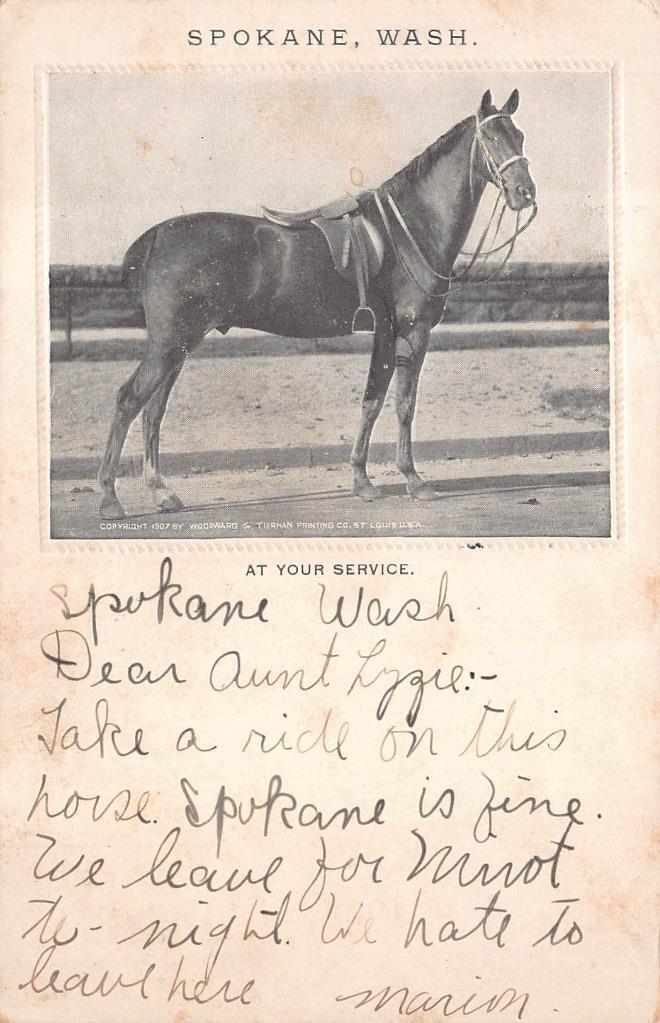 SPOKANE, WASH.
COPYRIGHT 1907 BY WOODWARD & TIERNAN PRINTING CO. ST. LOUIS U.S.A.
AT YOUR SERVICE.
Spokane Wash.
Dear Aunt Lyzie:-
Take a ride on this
horse. Spokane is fine.
We leave for Minot
to-night. We hate to
leave here Marion.